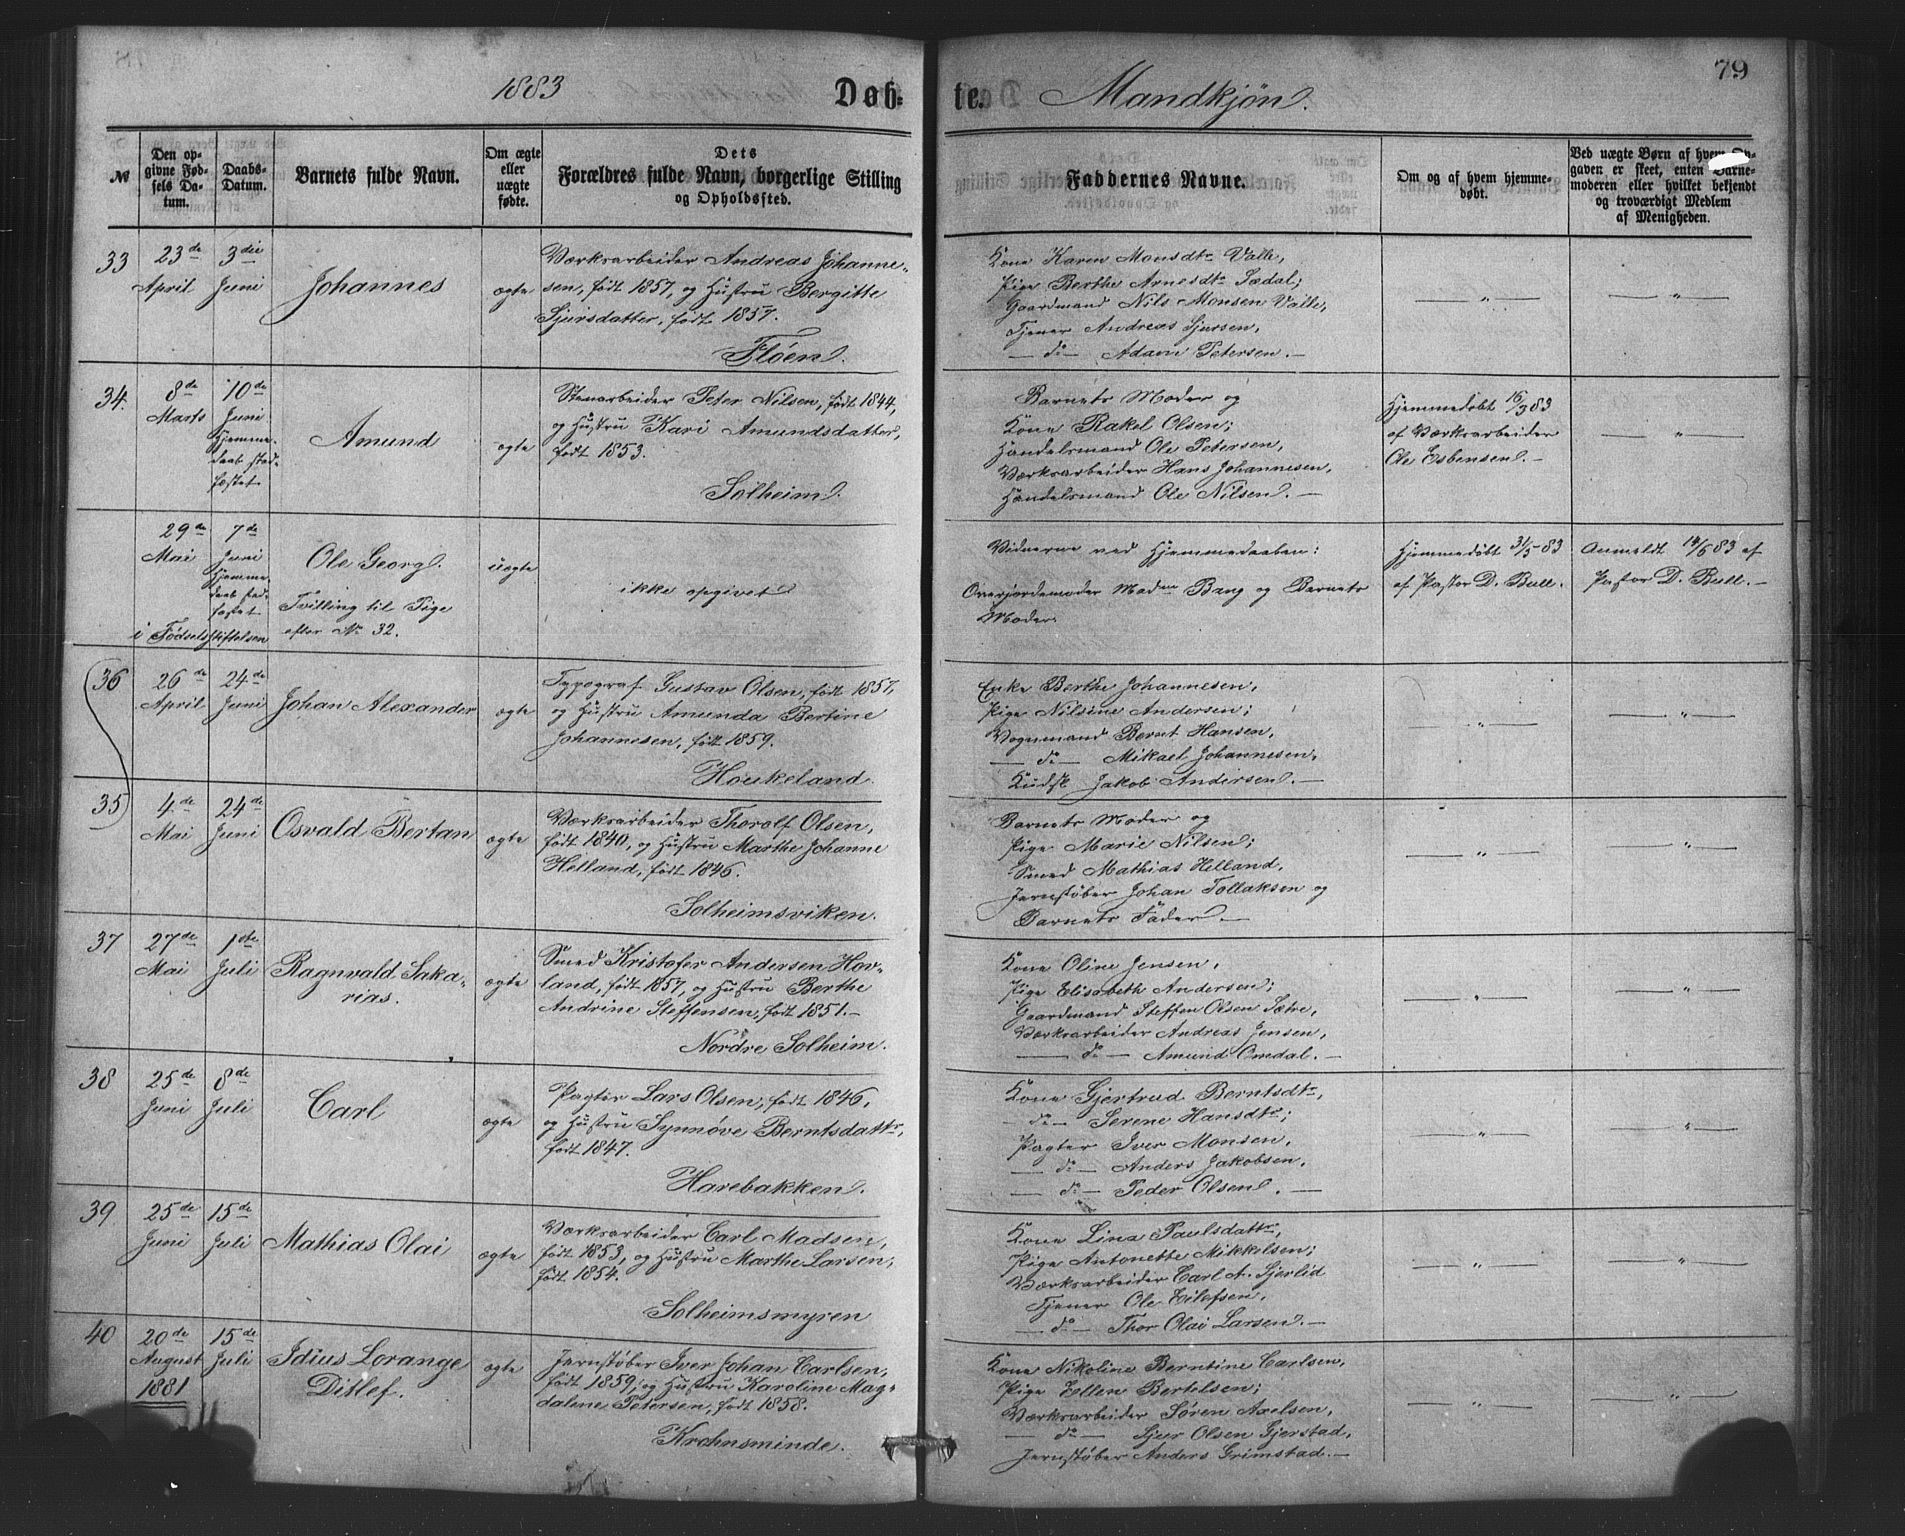 1883
Døb-
te.
Mandkjøn.
79
№
Den op-
givne Fød-
sels Da-
tum.
Daabs-
Datum.
Barnets fulde Navn.
Om ægte
eller
uægte
fødte.
Dets
Forældres fulde Navn, borgerlige Stilling
og Opholdssted.
Faddernes Navne.
Om og af hvem hjemme-
døbt.
Ved uægte Børn af hvem Op-
gaven er skeet, enten Barne-
moderen eller hvilket bekjendt
og troværdigt Medlem
af Menigheden.
33
23de
April
3die
Juni
Johannes
ægte
Værksarbeider Andreas Johanne-
sen, født 1857, og Hustru Bergitte
Sjursdatter, født 1857.
Fløen.
Kone Karen Monsdtr Valle,
Pige Berthe Arnesdtr Sædal;
Gaardmand Nils Monsen Valle,
Tjener Andreas Sjursen,
— do — Adam Petersen. —
— " —
— " —
34.
8de
Marts
10de
Juni.
Hjemme-
daab stad-
fæstet.
Amund
ægte
Stenarbeider Peter Nilsen, født 1844,
og Hustru Kari Amundsdatter,
født 1853.
Solheim.
Barnets Moder og
Kone Rakel Olsen;
Handelsmand Ole Petersen,
Værksarbeider Hans Johannesen,
Handelsmand Ole Nilsen. —
Hjemmedøbt 16/3 83
af Værksarbeider
Ole Esbensen. —
— " —
29de
Mai
7de
Juni
Hjemme-
daab stad-
fæstet
i Fødselsstiftelsen
Ole Georg.
Tvilling til Pige
efter No 32.
uægte
ikke opgivet
Vidnerne ved Hjemmedaaben:
Overjordemoder Madme Bang og Barnets
Moder.
Hjemmedøbt 31/5 83
af Pastor D. Bull. —
Anmeldt 14/6 83 af
Pastor D. Bull. —
36
26de
April
24de
Juni
Johan Alexander
ægte
Typograf Gustav Olsen, født 1857,
og Hustru Amunda Bertine
Johannesen, født 1859.
Houkeland.
Enke Berthe Johannesen,
Pige Nilsine Andersen;
Vognmand Bernt Hansen,
— do — Mikael Johannesen,
Kudsk Jakob Andersen. —
— " —
— " —
35
4de
Mai
24de
Juni
Osvald Bertan
ægte
Værksarbeider Thorolf Olsen,
født 1840, og Hustru Marthe Johanne
Helland, født 1846.
Solheimsviken.
Barnets Moder og
Pige Marie Nilsen;
Smed Mathias Helland,
Jernstøber Johan Tollaksen og
Barnets Fader. —
— " —
— " —
37
27de
Mai
1ste
Juli
Ragnvald Saka-
rias.
ægte
Smed Kristofer Andersen Hov-
land, født 1857, og Hustru Berthe
Andrine Steffensen, født 1851. —
Nordre Solheim.
Kone Oline Jensen,
Pige Elisabeth Andersen;
Gaardmand Steffen Olsen Sætre,
Værksarbeider Andreas Jensen,
— do — Amund Omdal. —
— " —
— " —
38
25de
Juni
8de
Juli
Carl
ægte
Pagter Lars Olsen, født 1846,
og Hustru Synnøve Berntsdattr,
født 1847.
Harebakken.
Kone Gjertrud Berntsdtr,
— do — Serene Hansdtr;
Pagter Iver Monsen,
— do — Anders Jakobsen,
— do — Peder Olsen. —
— " —
— " —
39
25de
Juni
15de
Juli
Mathias Olai
ægte
Værksarbeider Carl Madsen,
født 1853, og Hustru Marthe Larsen,
født 1854.
Solheimsmyren
Kone Lina Paulsdattr,
Pige Antonette Mikkelsen;
Værksarbeider Carl A. Gjerlid
Tjener Ole Eilefsen,
— do — Thor Olai Larsen. —
— " —
— " —
40
20de
August
1881
15de
Juli
Idius Lorange
Ditlef.
ægte
Jernstøber Iver Johan Carlsen,
født 1859, og Hustru Karoline Mag-
dalene Petersen, født 1858.
Krohnsminde.
Kone Nikoline Berntine Carlsen,
Pige Ellen Bertelsen;
Værksarbeider Søren Axelsen,
— do — Sjur Olsen Gjerstad,
Jernstøber Anders Grimstad. —
— " —
— " —